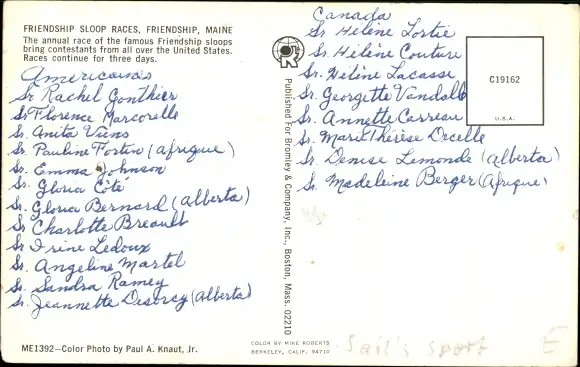 FRIENDSHIP SLOOP RACES, FRIENDSHIP, MAINE
The annual race of the famous Friendship sloops
bring contestants from all over the United States.
Races continue for three days.
Americaines
Sr Rachel Gonthier
Sr Florence Marcorelle
Sr. Anita Viens
Sr. Pauline Fortin (Afrique)
Sr. Emma Johnson
Sr. Gloria Côté
Sr. Gloria Bernard (Alberta)
Sr Charlotte Breault
Sr Irène Ledoux
Sr. Angeline Martel
Sr. Sandra Ramey
Sr. Jeannette Desorcy (Alberta)
ME1392—Color Photo by Paul A. Knaut, Jr.
Published For Bromley & Company, Inc., Boston, Mass. 02210
COLOR BY MIKE ROBERTS
BERKELEY, CALIF. 94710
Canada
Sr Hélène Lortie
Sr. Hélène Couture
Sr. Hélène Lacasse
Sr. Georgette Vandal
Sr. Annette Carreau
Sr. Marie Thérèse Decelle
Sr Denise Lemonde (Alberta)
Sr. Madeleine Berger (Afrique)
C19162
U.S.A.
Sail's sport
E